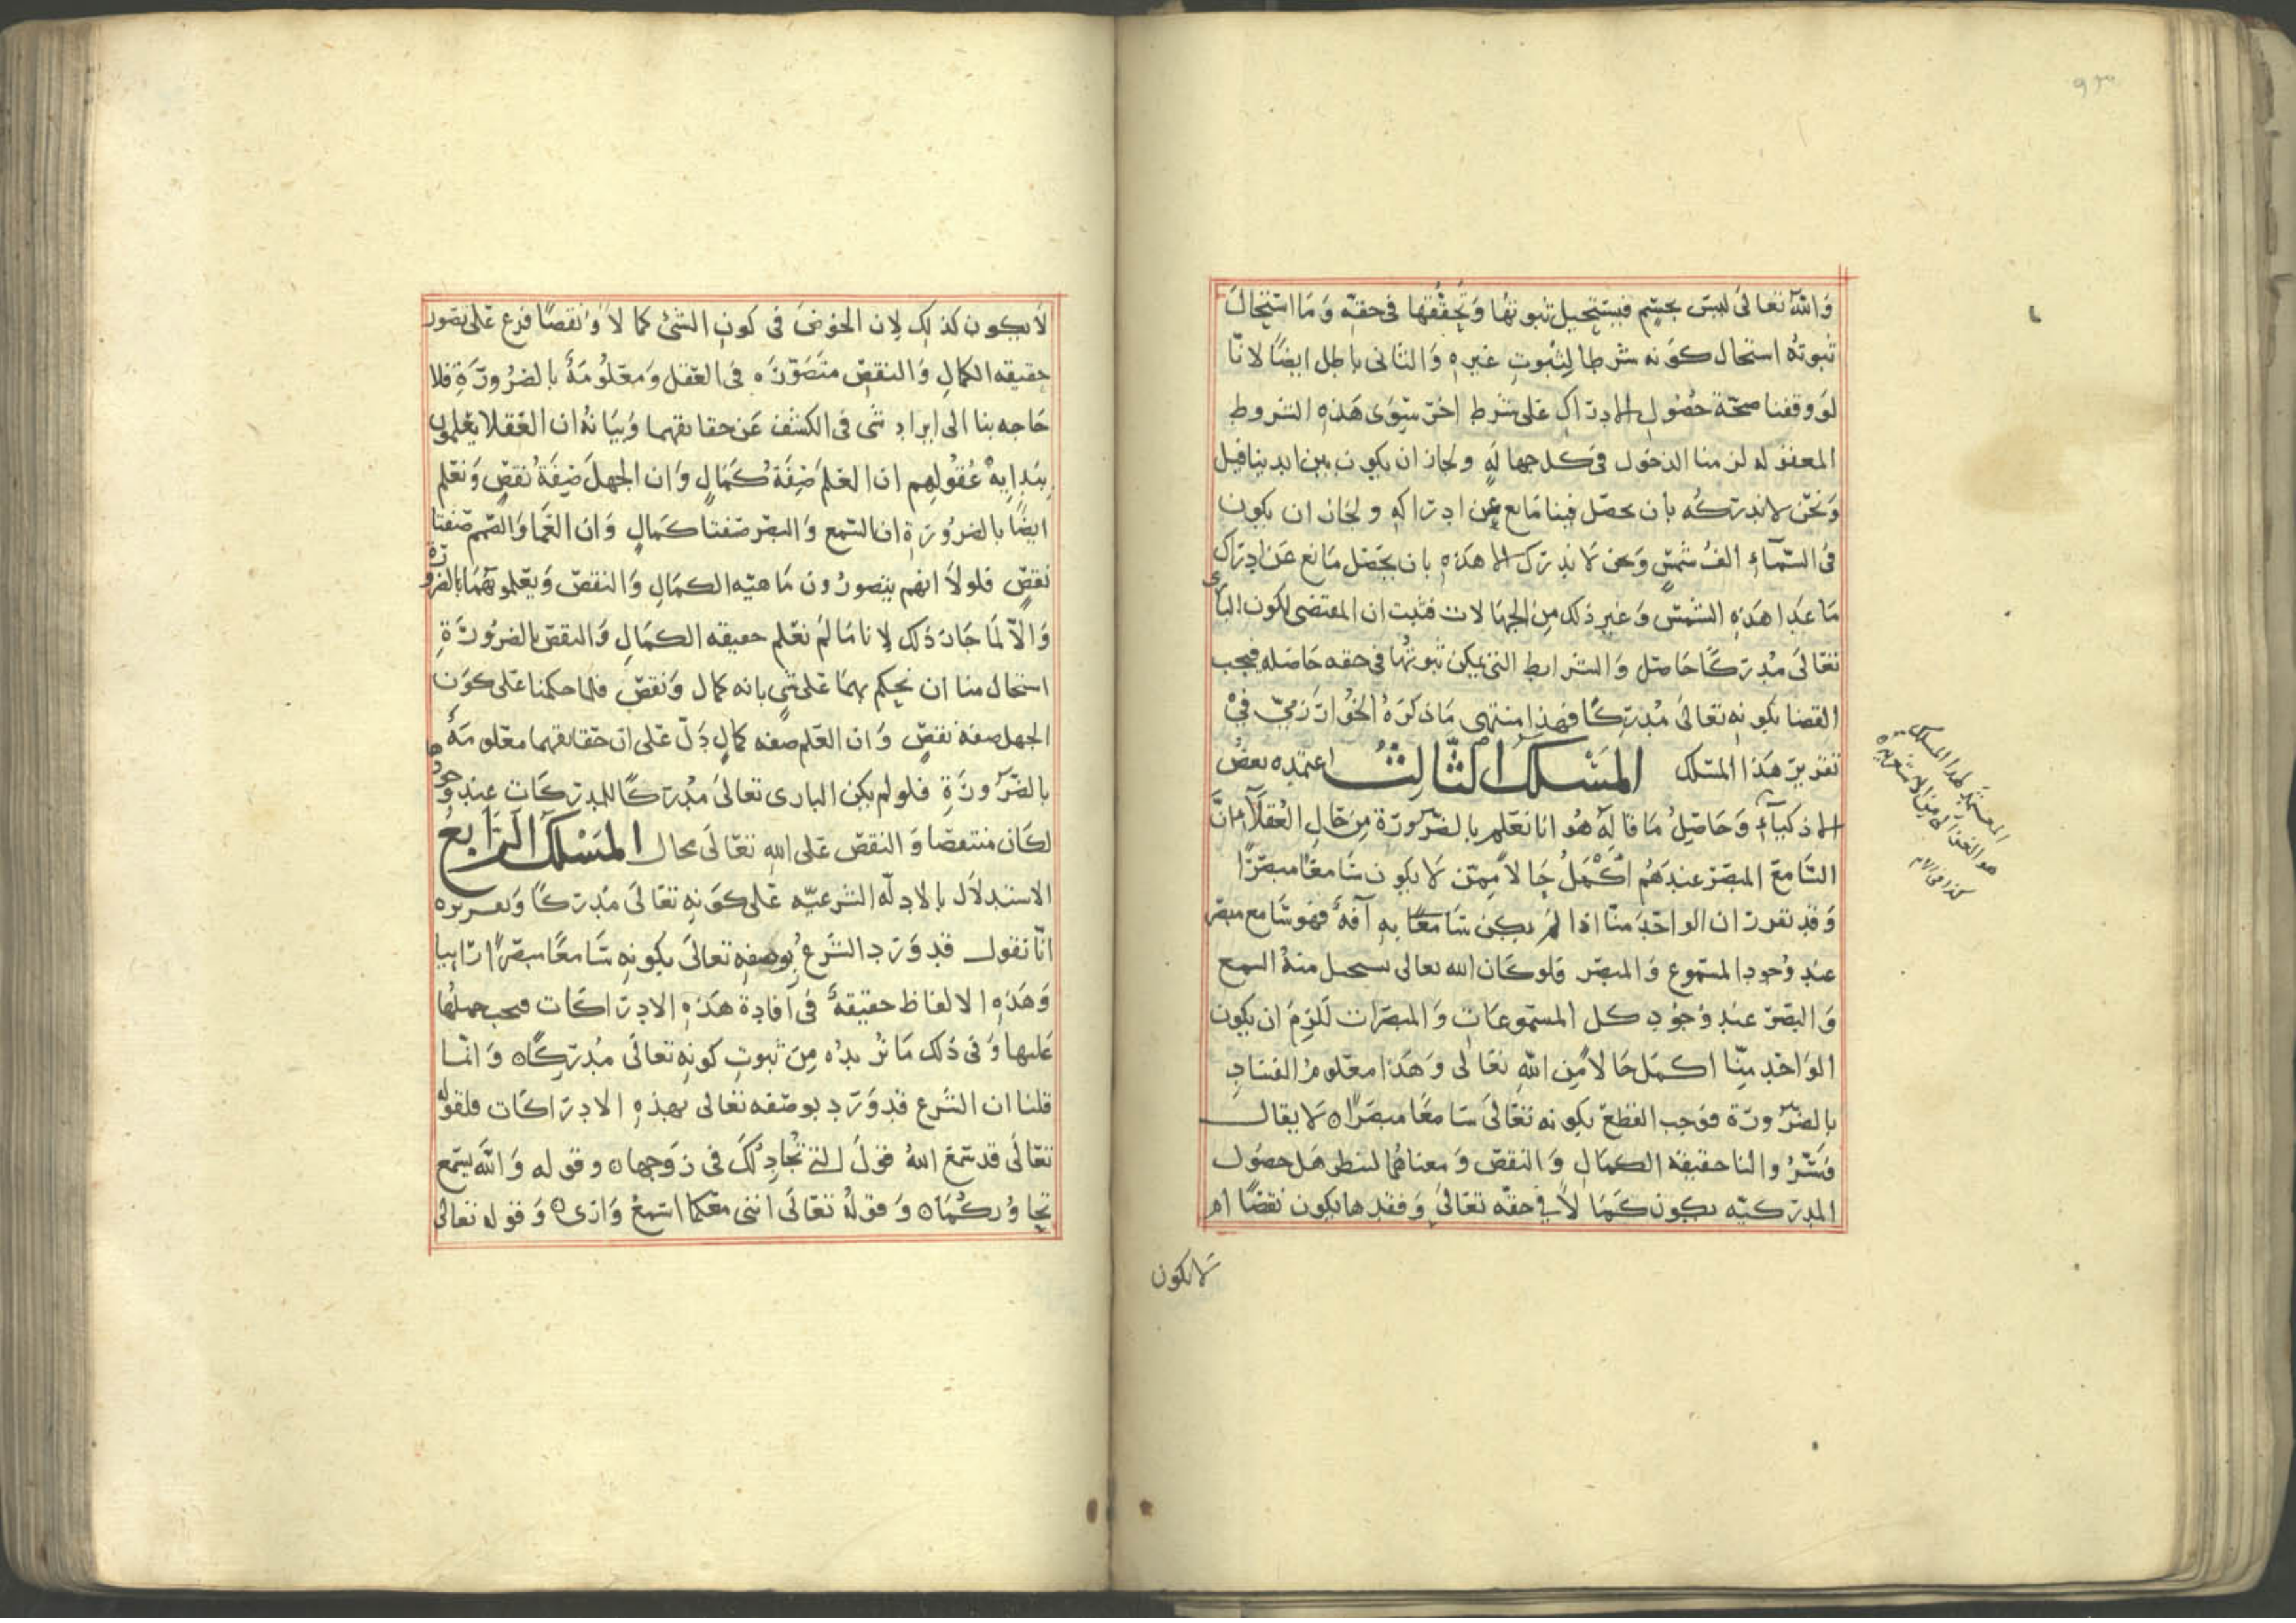 والله تعالى ليس بجسم فيستحيل ثبوتها وتحققها فى حقه وما استحال
ثبوته استحال كونه شرطا لثبوت غيره والثانى باطل ايضا لانا
لو وقفنا صحة حصول الادراك على شرط اخر سوى هذه الشروط
المعقوله لزمنا الدخول فى كل جهاله ولجاز ان يكون بين ايدينا فيل
ونحن لا ندركه بان يحصل فينا مانع عن ادراكه ولجاز ان يكون
فى السمآء الف شمس ونحن لا ندرك الا هذه بان يحصل مانع عن ادراك
ما عدا هذه الشمس وغير ذلك من الجهالات فثبت ان المقتضى لكون البارى
تعالى مدركا حاصل والشرايط التى يمكن ثبوتها فى حقه حاصله فيجب
القضا بكونه تعالى مدركا فهذا منتهى ما ذكره الخوارزمى فى
تقرير هذا المسلك المسلك الثالث اعتمده بعض
الاذكيآء وحاصل ما قاله هو انا نعلم بالضرورة من حال العقلآء ان
السامع المبصر عندهم اكمل حالا ممن لا يكون سامعا مبصرا
وقد تقرر ان الواحد منا اذا لم يكن سامعا به آفة فهو سامع مبصر
عند وجود المسموع والمبصر فلو كان الله تعالى يستحيل منه السمع
والبصر عند وجود كل المسموعات والمبصرات للزم ان يكون
الواحد منا اكمل حالا من الله تعالى وهذا معلوم الفساد
بالضرورة فوجب القطع بكونه تعالى سامعا مبصرا ه لا يقال
فسروا لنا حقيقة الكمال والنقص ومعناهما لننظر هل حصول
المدركيه يكون كمالا فى حقه تعالى وفقدها يكون نقصا ام
لا يكون
المعتمد لهذا المسلك
هو الغزالى من الاشعريه
كذا فى الام
لا يكون كذلك لان الخوض فى كون الشئ كمالا ونقصا فرع على تصور
حقيقه الكمال والنقص متصوره فى العقل ومعلومة بالضرورة فلا
حاجه بنا الى ايراد شى فى الكشف عن حقايقهما وبيانه ان العقلا يعلمون
ببدايه عقولهم ان العلم صفة كمال وان الجهل صفة نقص ونعلم
ايضا بالضرورة ان السمع والبصر صفتا كمال وان العما والصمم صفتا
نقص فلولا انهم يتصورون ماهيه الكمال والنقص ويعلمونهما بالضرورة
والا لما جاز ذلك لانا ما لم نعلم حقيقه الكمال والنقص بالضرورة
استحال منا ان نحكم بهما على شى بانه كمال ونقص فلما حكمنا على كون
الجهل صفه نقص وان العلم صفه كمال دل على ان حقايقهما معلومة
بالضرورة فلو لم يكن البارى تعالى مدركا للمدركات عند وجودها
لكان منتقصا والنقص على الله تعالى محال المسلك الرابع
الاستدلال بالادله الشرعيه على كونه تعالى مدركا وتقريره
انا نقول قد ورد الشرع بوصفه تعالى بكونه سامعا مبصرا رائيا
وهذه الالفاظ حقيقة فى افادة هذه الادراكات فيجب حملها
عليها وفى ذلك ما نريده من ثبوت كونه تعالى مدركا ه وانما
قلنا ان الشرع قد ورد بوصفه تعالى بهذه الادراكات فلقوله
تعالى قد سمع الله قول التى تجادلك فى زوجها ه وقوله والله يسمع
تحاوركما ه وقوله تعالى اننى معكما اسمع وارى ه وقوله تعالى